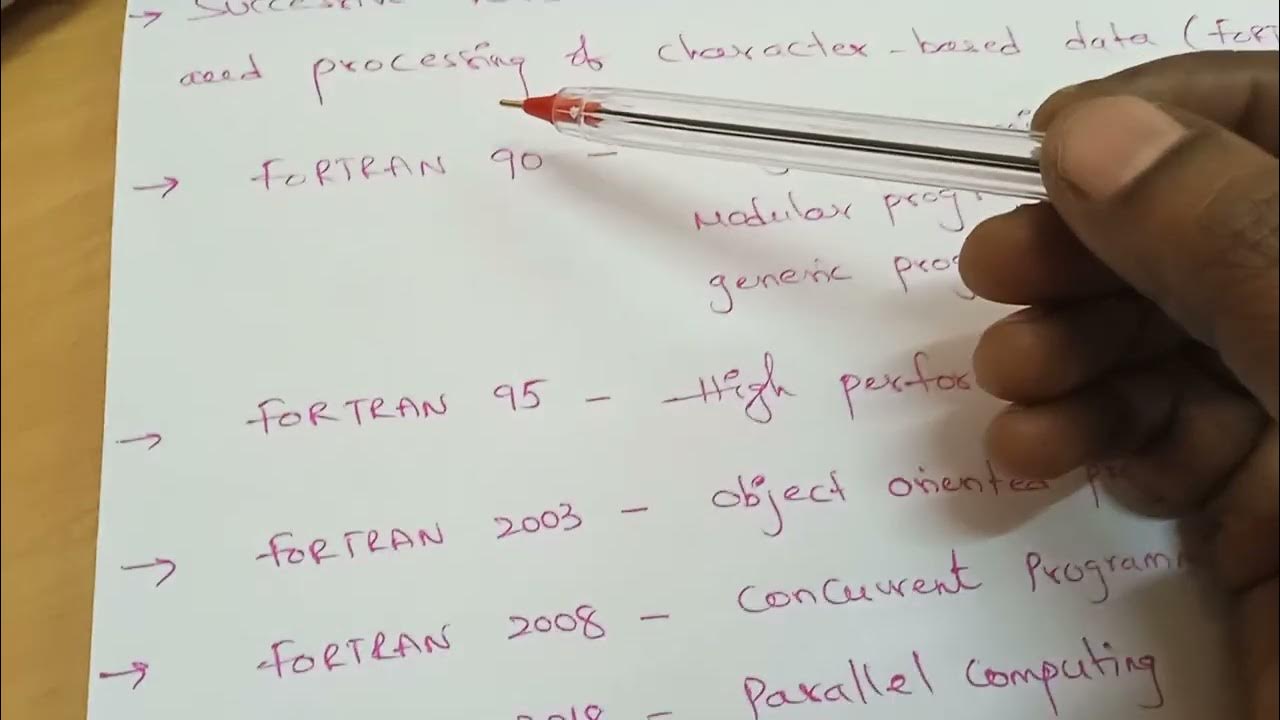 →
and processing of character-based data (FORT
→ FORTRAN 90 -
Modular prog
generic prog
→ FORTRAN 95 - High perfor
→ FORTRAN 2003 - object oriented pr
→ FORTRAN 2008 - Concurrent Program
2018 - Parallel Computing